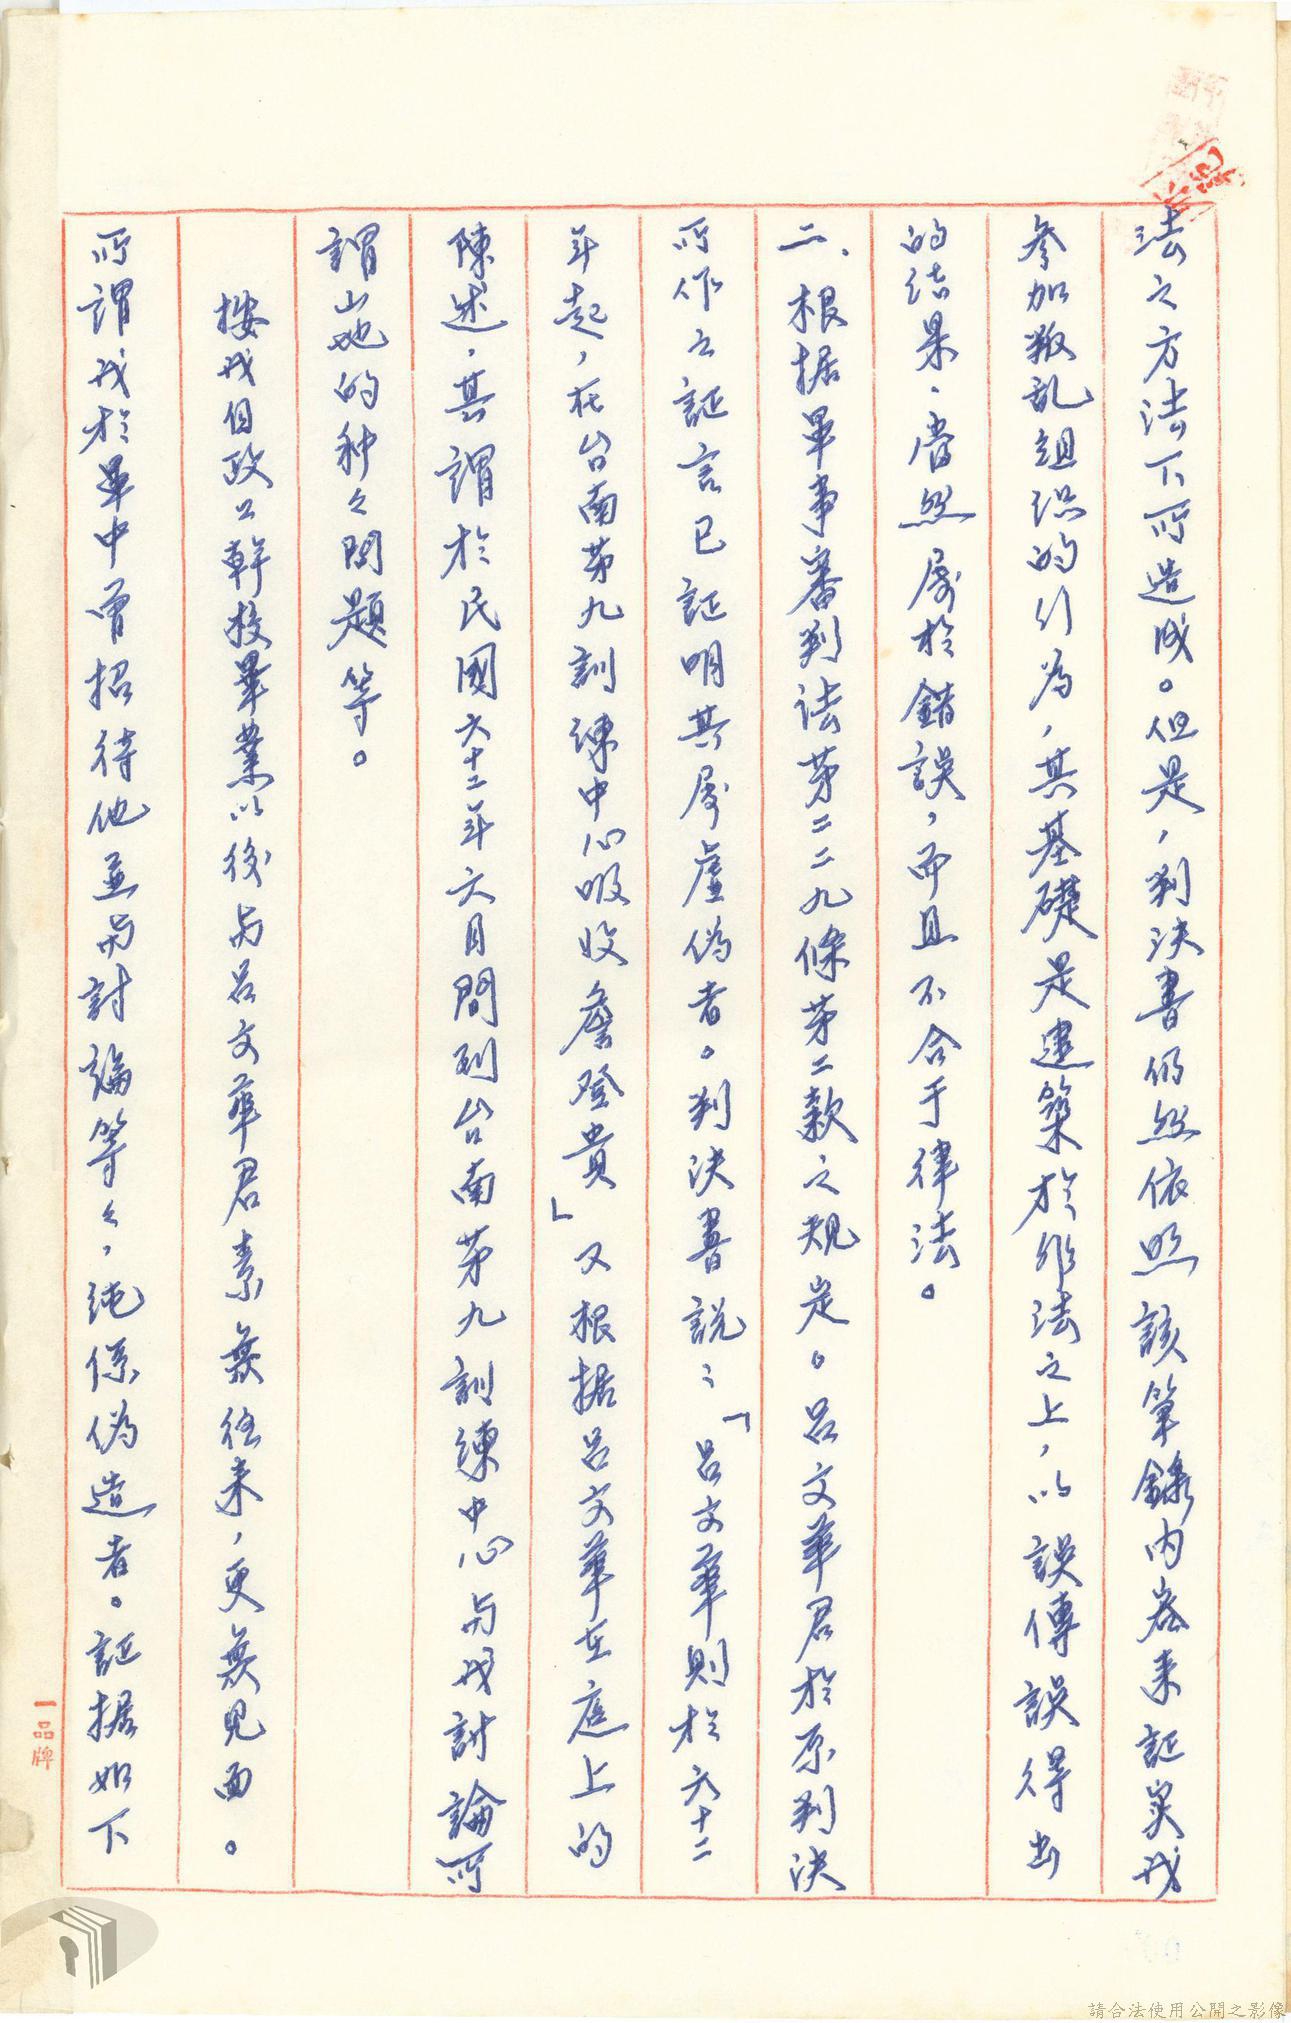 法之方法下所造成。但是，判決書仍然依照該筆錄內容來証实我
参加叛乱組织的行为，其基礎是建築於非法之上，以誤傳誤得出
的结果，当然属於錯誤，而且不合于律法。
二、根据軍事審判法第二二九條第二款之规定。呂文華君於原判決
所作之証言已証明其属虛偽者。判決書説：「呂文華則於六十二
年起，在台南第九訓練中心吸收詹登貴」又根据呂文華在庭上的
陳述，其謂於民國六十二年六月間到台南第九訓練中心与我討論所
謂山地的种々問題等。
按我自政工幹校畢業以後与呂文華君素無往来，更無見面。
所謂我於軍中曾招待他並与討論等々，純係偽造者。証据如下
一品牌
請合法使用公開之影像